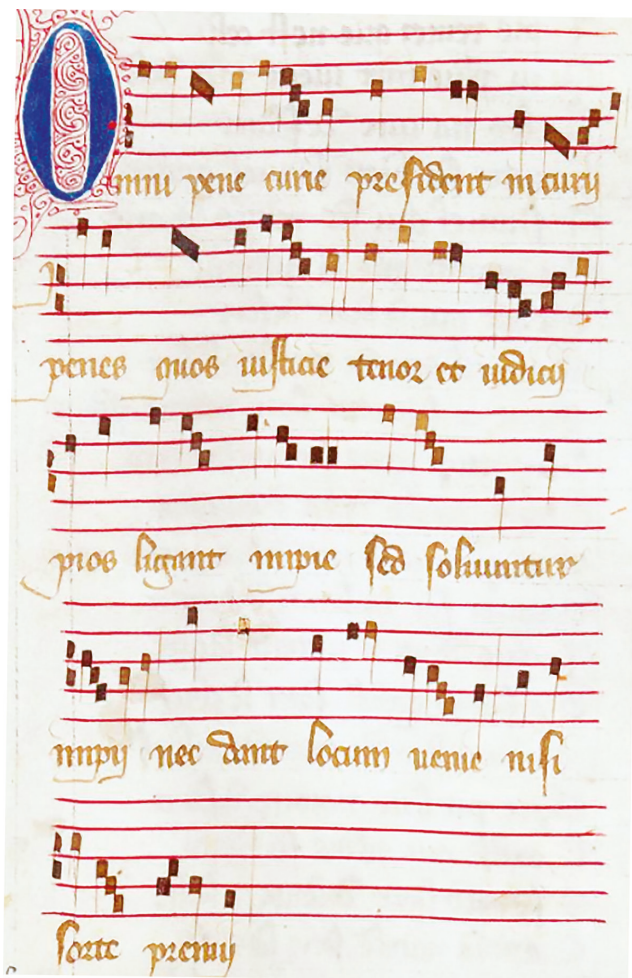 Omni pene curie president in curii
penes quos iusticie tenor et iudicii
pios ligant impie sed soluuntur
impii nec dant locum uenie nisi
sorte premii